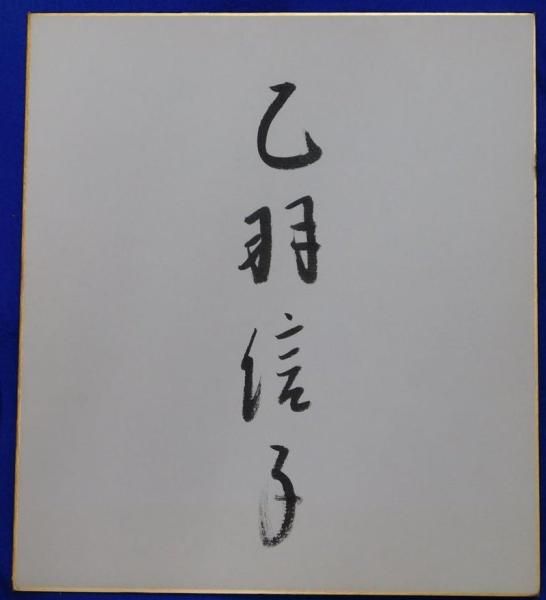 乙羽信子